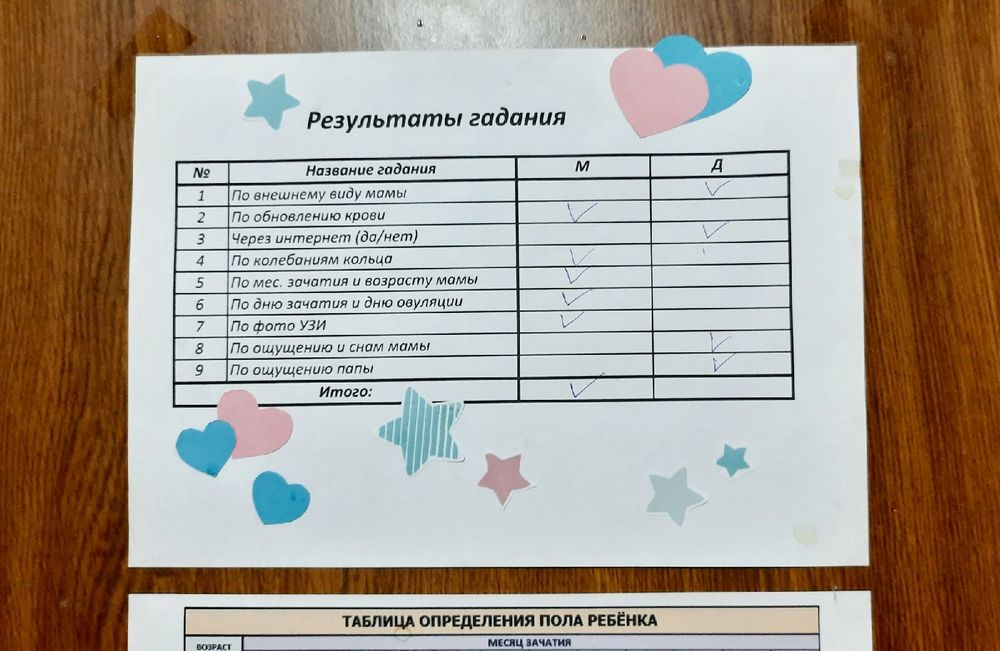 Результаты гадания
№ Название гадания М Д
1 По внешнему виду мамы ✓
2 По обновлению крови ✓
3 Через интернет (да/нет) ✓
4 По колебаниям кольца ✓
5 По мес. зачатия и возрасту мамы ✓
6 По дню зачатия и дню овуляции ✓
7 По фото УЗИ ✓
8 По ощущению и снам мамы ✓
9 По ощущению папы ✓
Итого: ✓
ТАБЛИЦА ОПРЕДЕЛЕНИЯ ПОЛА РЕБЁНКА
ВОЗРАСТ МЕСЯЦ ЗАЧАТИЯ